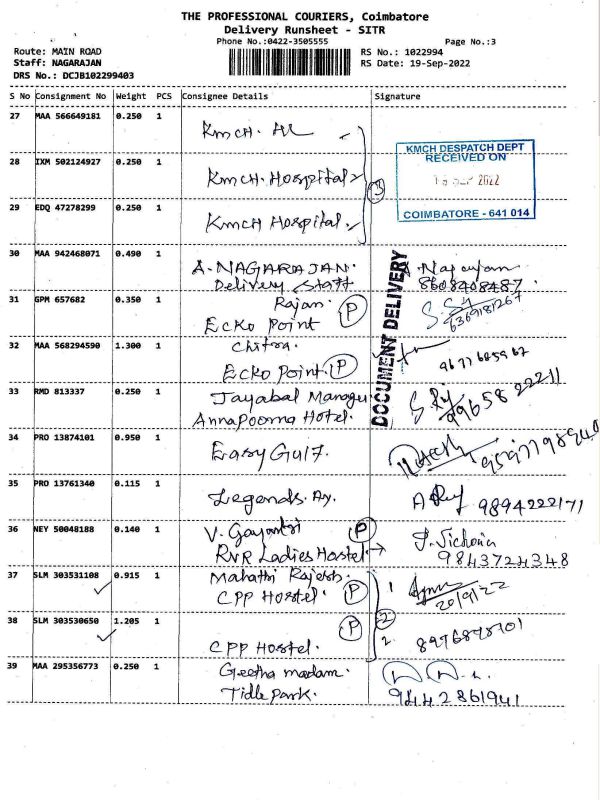 THE PROFESSIONAL COURIERS, Coimbatore
Delivery Runsheet - SITR
Phone No.:0422-3505555
Page No.:3
Route: MAIN ROAD
RS No.: 1022994
Staff: NAGARAJAN
RS Date: 19-Sep-2022
DRS No.: DCJB102299403
S No Consignment No Weight PCS Consignee Details Signature
27 MAA 566649181 0.250 1 KMCH.
KMCH DESPATCH DEPT
RECEIVED ON
SEP 2022
COIMBATORE - 641 014
28 IXM 502124927 0.250 1 KMCH. Hospital
3
29 EDQ 47278299 0.250 1 KMCH Hospital.
30 MAA 942468071 0.490 1 A. NAGARAJAN. A. Nagarajan
Delivery Staff 8608408487.
DOCUMENT DELIVERY
31 GPM 657682 0.350 1 Rajan. P
Ecko Point 6369181267
32 MAA 568294590 1.300 1 Chitra.
Ecko Point. P
33 RMD 813337 0.250 1 Jayabal Manager
Annapoorna Hotel. 99658 22211
34 PRO 13874101 0.950 1
35 PRO 13761340 0.115 1 Legends. 9894222171
36 NEY 50048188 0.140 1 V. Gayathri P
RVR Ladies Hostel 9843724348
37 SLM 303531108 0.915 1 Mahathi Rajesh. 1
CPP Hostel. P 20/9/22
2
38 SLM 303530650 1.205 1 P 2.
CPP Hostel.
39 MAA 295356773 0.250 1 Geetha madam.
Tidle Park. 9442861941